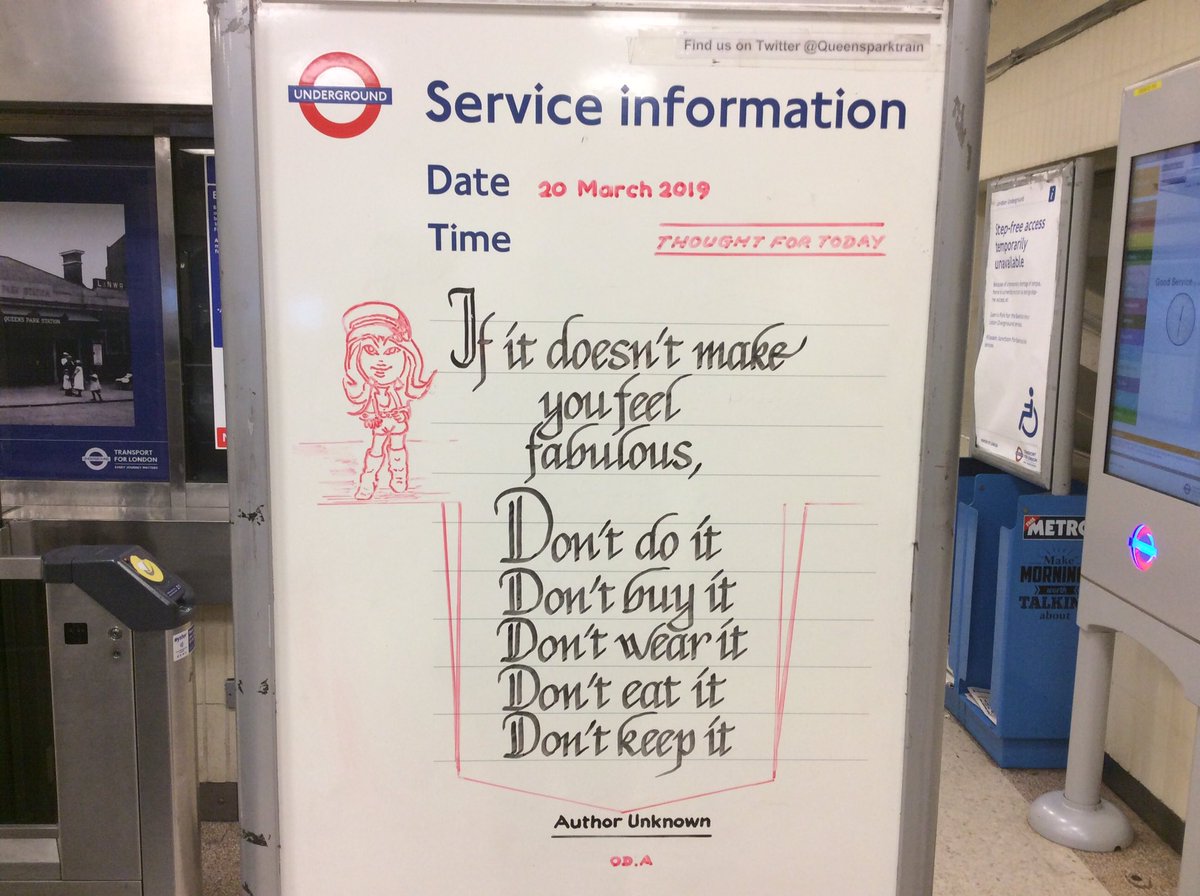 Find us on Twitter @Queensparktrain
UNDERGROUND
Service information
Date 20 March 2019
Time THOUGHT FOR TODAY
If it doesn't make
you feel
fabulous,
Don't do it
Don't buy it
Don't wear it
Don't eat it
Don't keep it
Author Unknown
OD.A
PARK STATION
QUEENS PARK STATION
TRANSPORT
FOR LONDON
EVERY JOURNEY MATTERS
London Underground
Step-free access
temporarily
unavailable
Good Service
METRO
Make
MORNING
worth
TALKIN
about